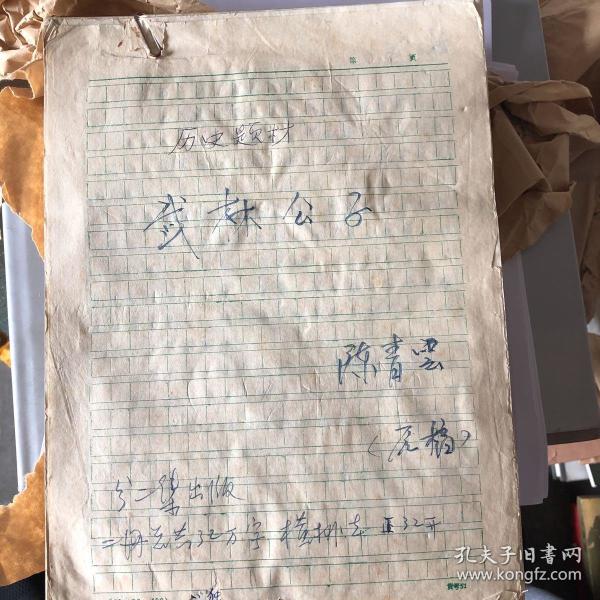 第 页
历史题材
武林公子
陈青云
（原稿）
分二集出版
二册总共32万字 横排本 正32开
孔夫子旧书网
www.kongfz.com